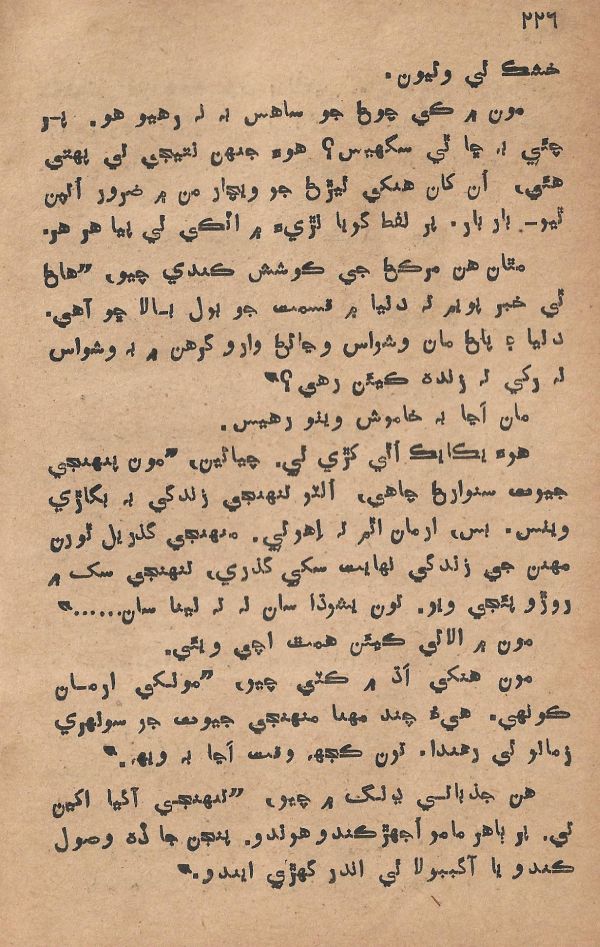 ۲۲۶
خشڪ ٿي ويون.
مون ۾ ڪي چوڻ جو ساهس به نه رهيو هو. پر
چئي به ڇا ٿي سگهيس؟ هوءَ جنهن نتيجي تي پهتي
هئي، اُن کان هٽڪي نيڙڻ جو ويچار من ۾ ضرور اُٿين
ٿيو- بار بار. پر لفظ گويا نڙيءَ ۾ اٽڪي ٿي پيا هر هر.
مٿان هن مرڪڻ جي ڪوشش ڪندي چيو، ”هاڻ
ٿي خبر پويم ته دنيا ۾ قسمت جو ٻول ٻالا ڇو آهي.
دنيا ۽ پاڻ مان وشواس وڃائڻ وارو گرهن ۾ به وشواس
نه رکي ته زنده ڪيئن رهي؟“
مان اَڃا به خاموش ويٺو رهيس.
هوءَ يڪايڪ اُٿي کڙي ٿي. چيائين، ”مون پنهنجي
جيوت سنوارڻ چاهي، اُلٽو تنهنجي زندگي به بگاڙي
ويٺس. بس، ارمان اٿم ته اِهو ئي. منهنجي گذريل ٿورن
مهنن جي زندگي نهايت سکي گذري، تنهنجي سڪ ۾
روڙو پئجي ويو. تون يشوڌا سان نه ته لينا سان......“
مون ۾ الائي ڪيئن همت اچي ويئي.
مون هنکي اَڌ ۾ ڪٽي چيو، ”مونکي ارمان
ڪونهي. هيءُ چند مهنا منهنجي جيوت جو سونهري
زمانو ٿي رهندا. تون ڪجهه وقت اَڃا به ويهه.“
هن جذباتي ڍنگ ۾ چيو، ”تنهنجي آگيا اکين
تي. پر ٻاهر مامو اُڃهڙ ڪندو هوندو. پنجن جا ڏهه وصول
ڪندو يا آگببولا ٿي اندر گهڙي ايندو.“